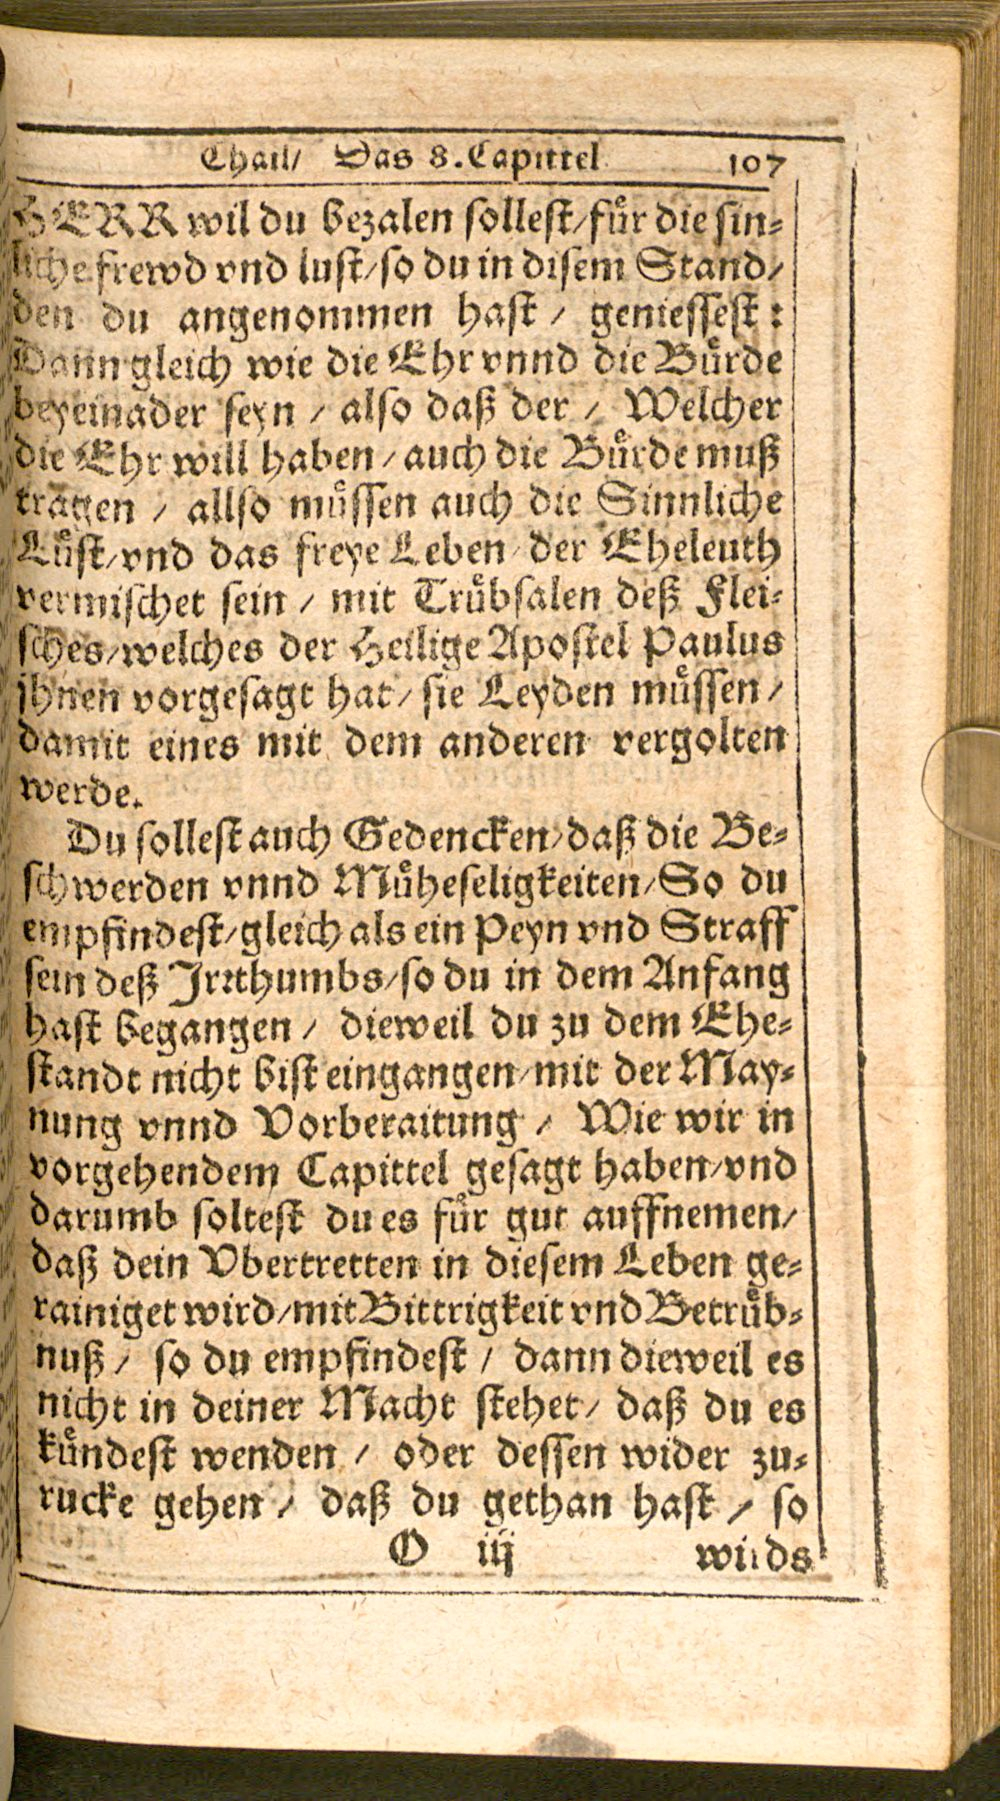 Thail/ Das 8. Capittel 107
HERR wil du bezalen sollest/ fuͤr die sin⸗
liche frewd vnd lust/ so du in disem Stand/
den du angenommen hast / geniessest:
Dann gleich wie die Ehr vnnd die Buͤrde
beyeinader seyn / also daß der / Welcher
die Ehr will haben / auch die Buͤrde muß
tragen / allso muͤssen auch die Sinnliche
Luͤst/ vnd das freye Leben der Eheleuth
vermischet sein / mit Truͤbsalen deß Flei⸗
sches/ welches der Heilige Apostel Paulus
jhnen vorgesagt hat/ sie Leyden muͤssen/
damit eines mit dem anderen vergolten
werde.
Du sollest auch Gedencken/ daß die Be⸗
schwerden vnnd Muͤheseligkeiten/ So du
empfindest/ gleich als ein Peyn vnd Straff
sein deß Jrꝛthumbs/ so du in dem Anfang
hast begangen / dieweil du zu dem Ehe⸗
standt nicht bist eingangen/ mit der May⸗
nung vnnd Vorberaitung / Wie wir in
vorgehendem Capittel gesagt haben/ vnd
darumb soltest du es fuͤr gut auffnemen/
daß dein Vbertretten in diesem Leben ge⸗
rainiget wird/ mit Bittrigkeit vnd Betruͤb⸗
nuß / so du empfindest / dann dieweil es
nicht in deiner Macht stehet/ daß du es
kuͤndest wenden / oder dessen wider zu⸗
rucke gehen / daß du gethan hast / so
O iij wirds